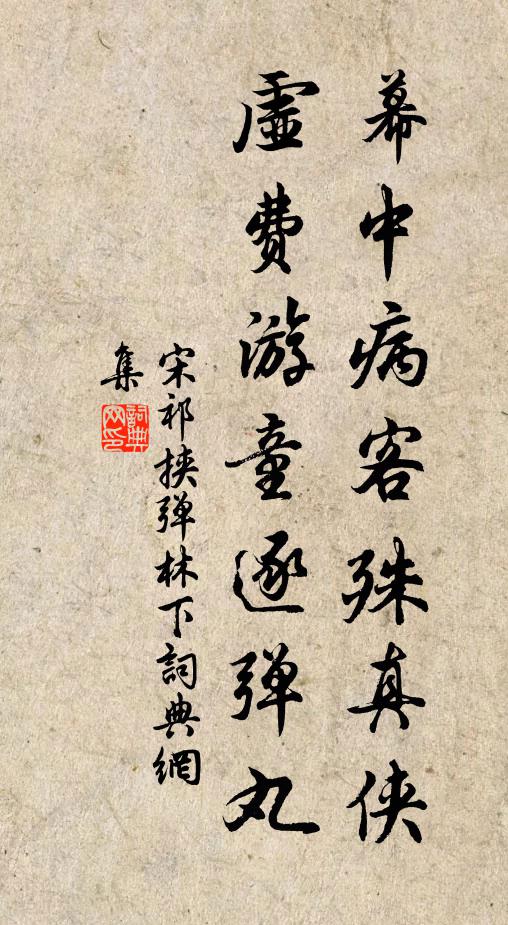 幕中病客殊真侠
虚费游童逐弹丸
宋祁挟弹林下詞典網
集
詞典
网印